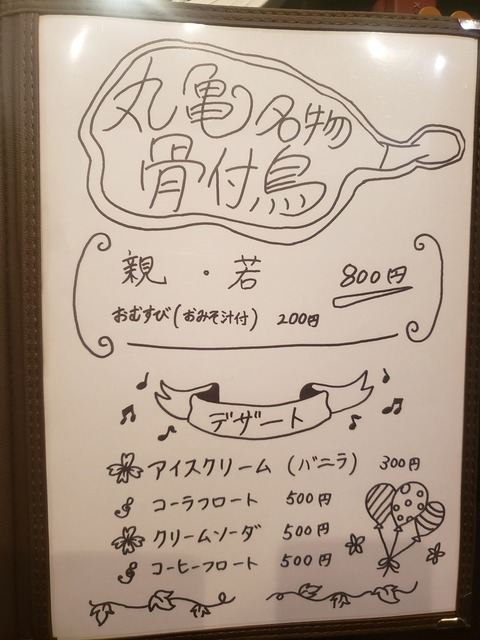 丸亀名物
骨付鳥
親・若 800円
おむすび(おみそ汁付) 200円
デザート
アイスクリーム (バニラ) 300円
コーラフロート 500円
クリームソーダ 500円
コーヒーフロート 500円